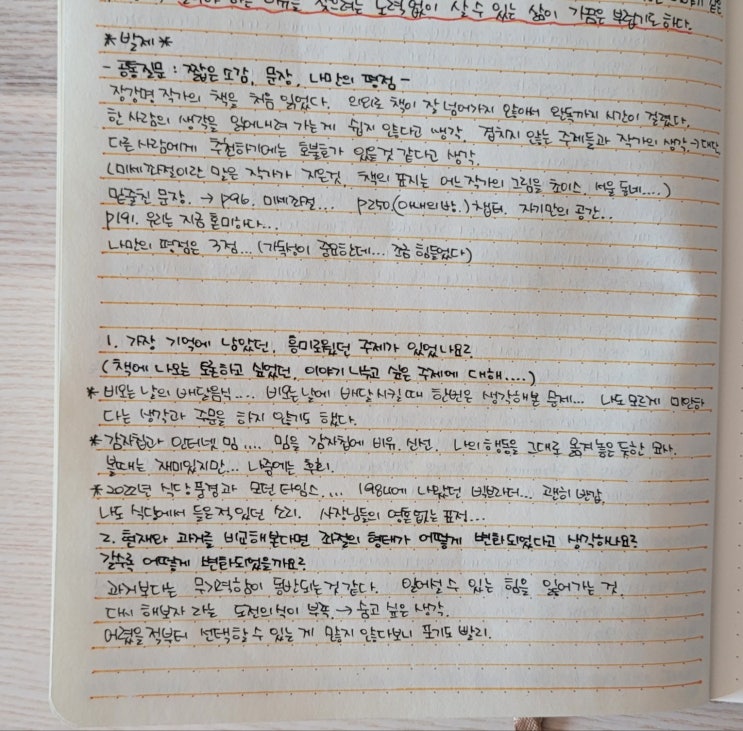 없이 살 수 있는 삶이 가끔은 부럽기도 하다.
*발제*
- 공통질문 : 짧은 소감, 문장, 나만의 평점 -
장강명 작가의 책을 처음 읽었다. 의외로 책이 잘 넘어가지 않아서 완독까지 시간이 걸렸다.
한 사람의 생각을 읽어내려 가는게 쉽지 않다고 생각. 겹치지 않는 주제들과 작가의 생각.→대단
다른 사람에게 추천하기에는 호불호가 있을것 같다고 생각.
(미세좌절이란 많은 작가가 지은것. 책의 표지는 어느 작가의 그림을 초이스. 서울 동네....)
밑줄친 문장. → P96. 미세좌절... P250(아내의 방.) 챕터. 자기만의 공간..
P191. 우리는 지금 혼미하다...
나만의 평점은 3점...(가독성이 중요한데... 조금 힘들었다)
1. 가장 기억에 남았던, 흥미로웠던 주제가 있었나요?
(책에 나오는 토론하고 싶었던, 이야기 나누고 싶은 주제에 대해....)
* 비오는 날의 배달음식.... 비오는 날에 배달 시킬때 한번은 생각해본 문제... 나도 모르게 미안하
다는 생각과 주문을 하지 않기도 했다.
* 감자칩과 인터넷 밈.... 밈을 감자칩에 비유. 신선. 나의 행동을 그대로 옮겨놓은 듯한 묘사.
볼때는 재미있지만... 나중에는 후회.
* 2022년 식당 풍경과 모던 타임스.... 1984에 나왔던 빅브라더... 괜히 반감.
나도 식당에서 들은 적 있던 소리. 사장님들의 영혼없는 표정...
2. 현재와 과거를 비교해본다면 좌절의 형태가 어떻게 변화되었다고 생각하나요?
갈수록 어떻게 변화되었을까요?
과거보다는 무기력함이 동반되는것 같다. 일어설 수 있는 힘을 잃어가는 것.
다시 해보자 라는 도전의식이 부족. → 숨고 싶은 생각.
어렸을 적부터 선택할 수 있는 게 많지 않다보니 포기도 빨리.